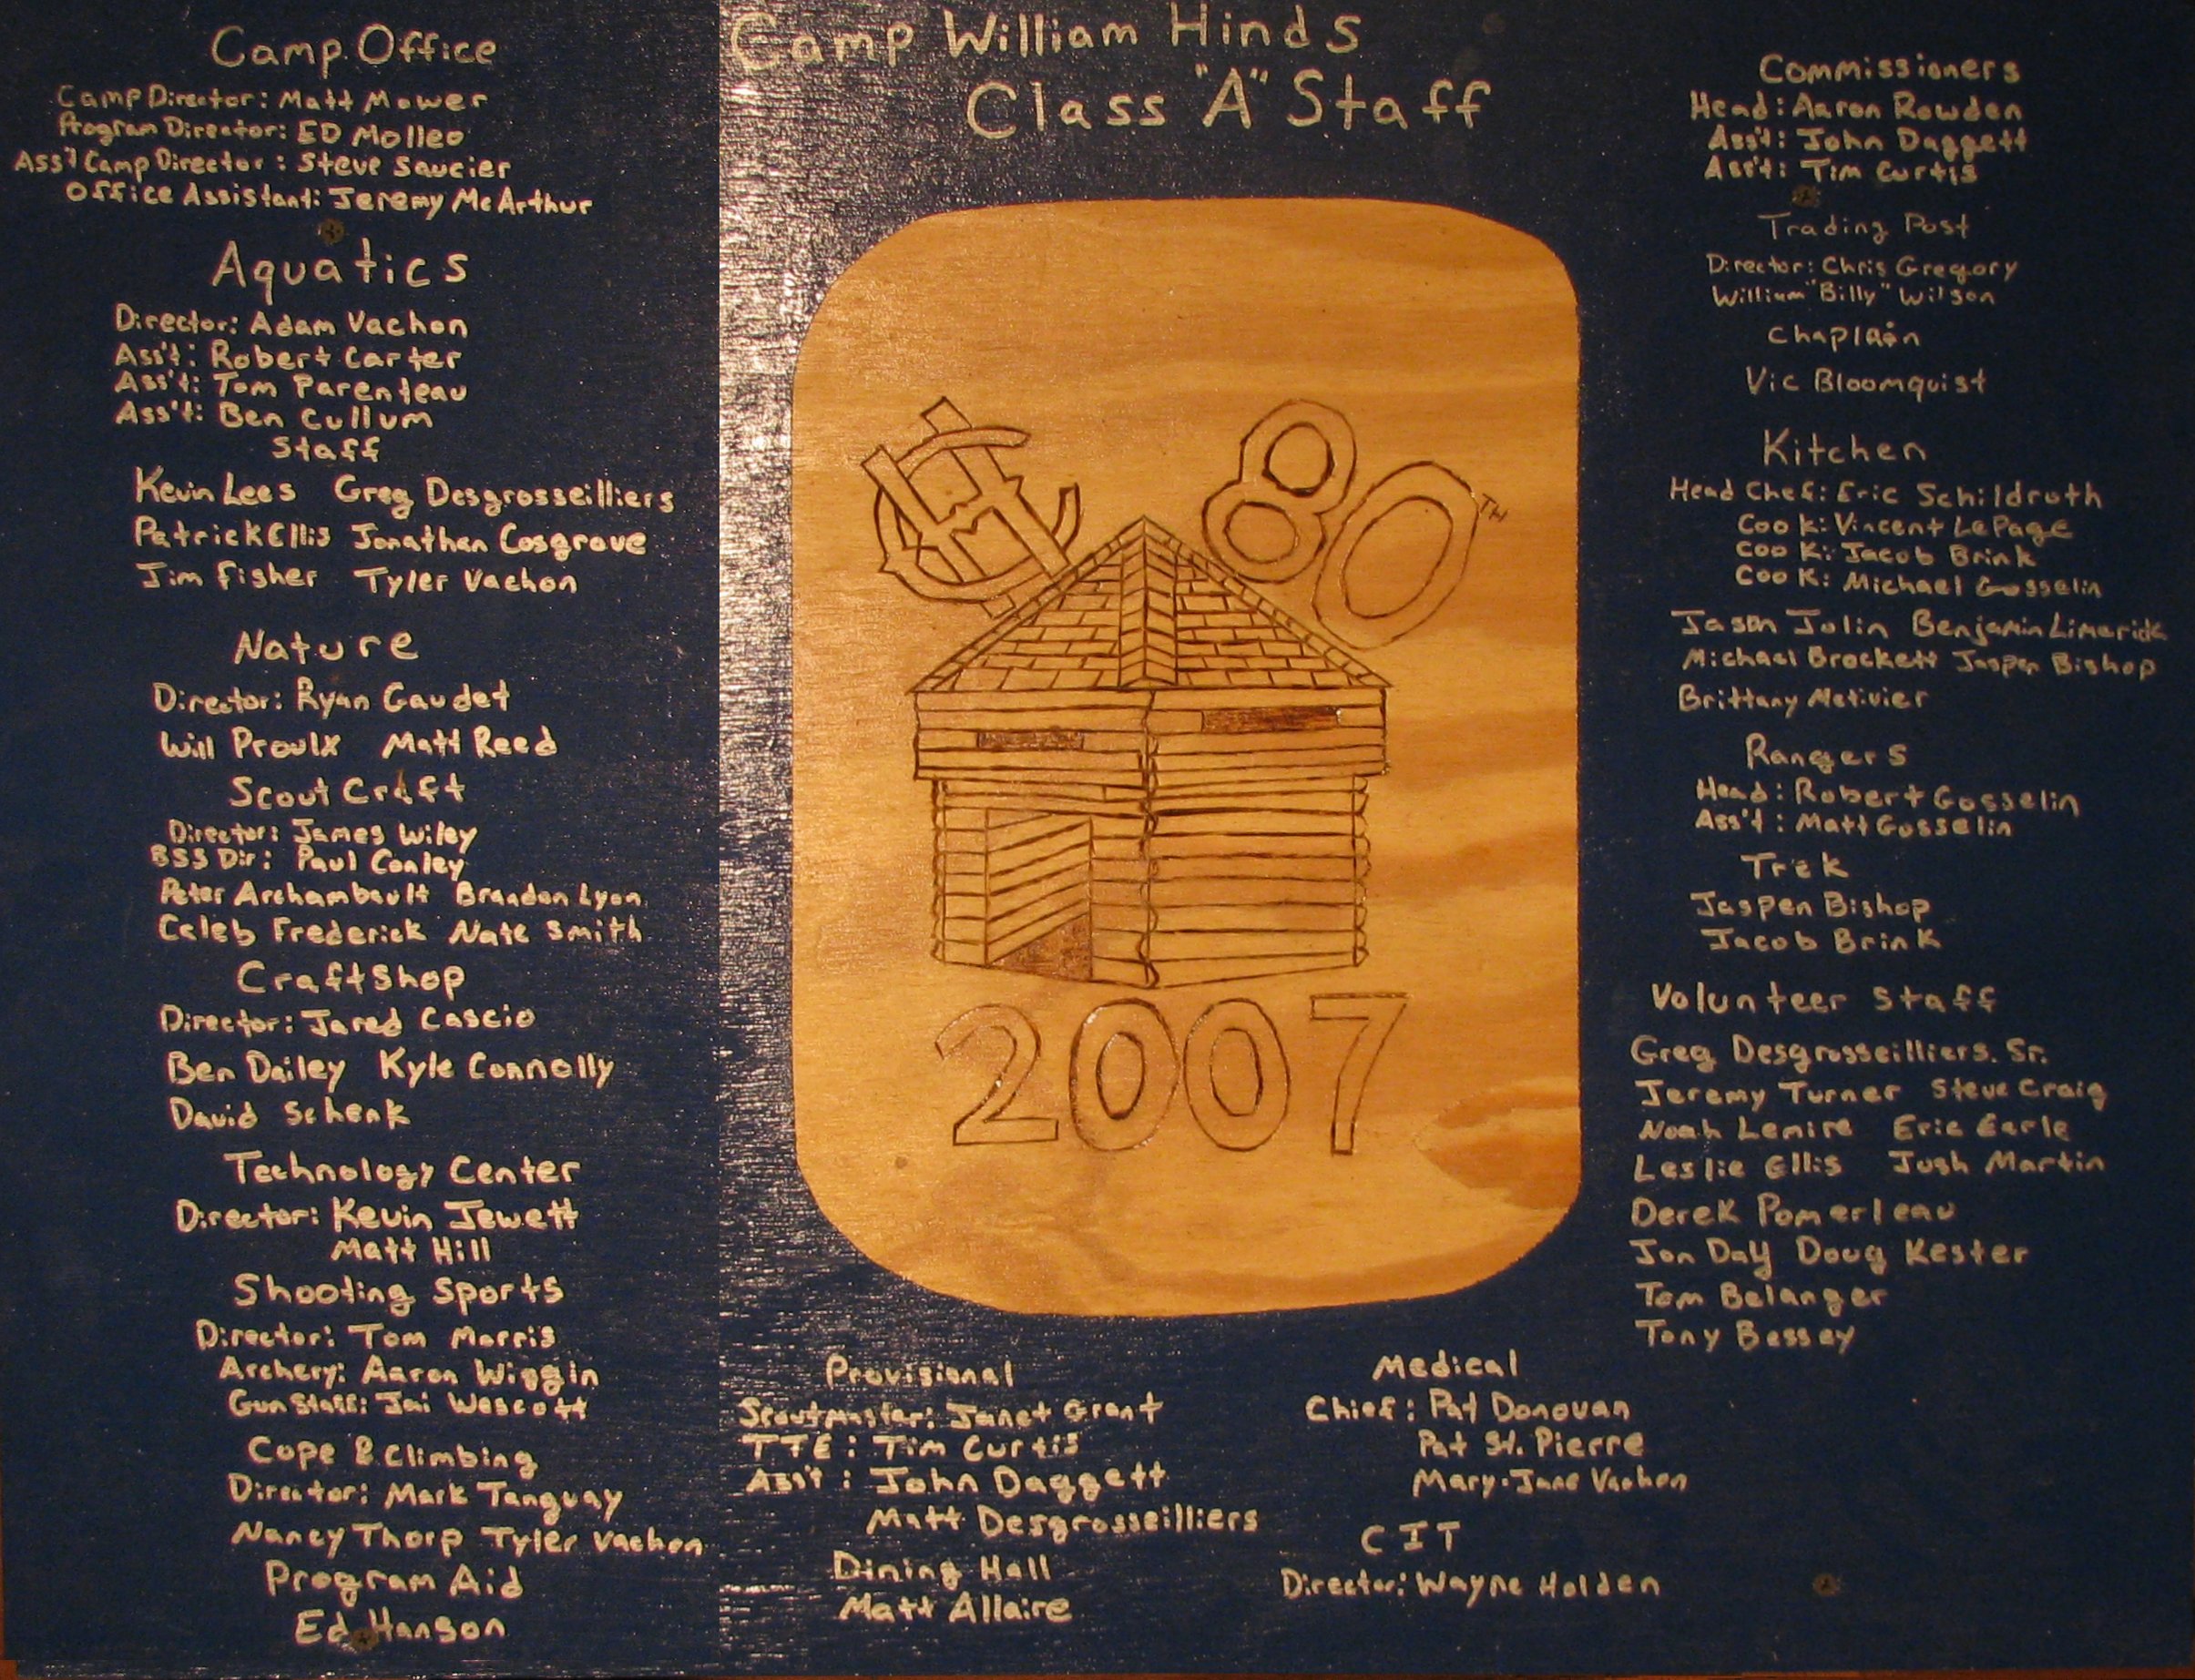 Camp William Hinds
Class "A" Staff
Camp Office
Camp Director: Matt Mower
Program Director: ED Molleo
Ass't Camp Director: Steve Saucier
Office Assistant: Jeremy McArthur
Aquatics
Director: Adam Vachon
Ass't: Robert Carter
Ass't: Tom Parenteau
Ass't: Ben Cullum
Staff
Kevin Lees Greg Desgrosseilliers
Patrick Ellis Jonathan Cosgrove
Jim Fisher Tyler Vachon
Nature
Director: Ryan Gaudet
Will Proulx Matt Reed
Scout Craft
Director: James Wiley
BSS Dir: Paul Conley
Peter Archambault Brandon Lyon
Caleb Frederick Nate Smith
Craftshop
Director: Jared Cascio
Ben Dailey Kyle Connolly
David Schenk
Technology Center
Director: Kevin Jewett
Matt Hill
Shooting Sports
Director: Tom Morris
Archery: Aaron Wiggin
Gun Staff: Jai Wescott
Cope & Climbing
Director: Mark Tanguay
Nancy Thorp Tyler Vachon
Program Aid
Ed Hanson
80TH
2007
Provisional
Scoutmaster: Janet Grant
TTE: Tim Curtis
Ass't: John Daggett
Matt Desgrosseilliers
Dining Hall
Matt Allaire
Medical
Chief: Pat Donovan
Pat St. Pierre
Mary-Jane Vachon
CIT
Director: Wayne Holden
Commissioners
Head: Aaron Rowden
Ass't: John Daggett
Ass't: Tim Curtis
Trading Post
Director: Chris Gregory
William "Billy" Wilson
Chaplain
Vic Bloomquist
Kitchen
Head Chef: Eric Schildroth
Cook: Vincent LePage
Cook: Jacob Brink
Cook: Michael Gosselin
Jason Jolin Benjamin Limerick
Michael Brockett Jaspen Bishop
Brittany Metivier
Rangers
Head: Robert Gosselin
Ass't: Matt Gosselin
Trek
Jaspen Bishop
Jacob Brink
Volunteer Staff
Greg Desgrosseilliers. Sr.
Jeremy Turner Steve Craig
Noah Lemire Eric Earle
Leslie Ellis Josh Martin
Derek Pomerleau
Jon Day Doug Kester
Tom Belanger
Tony Bessey